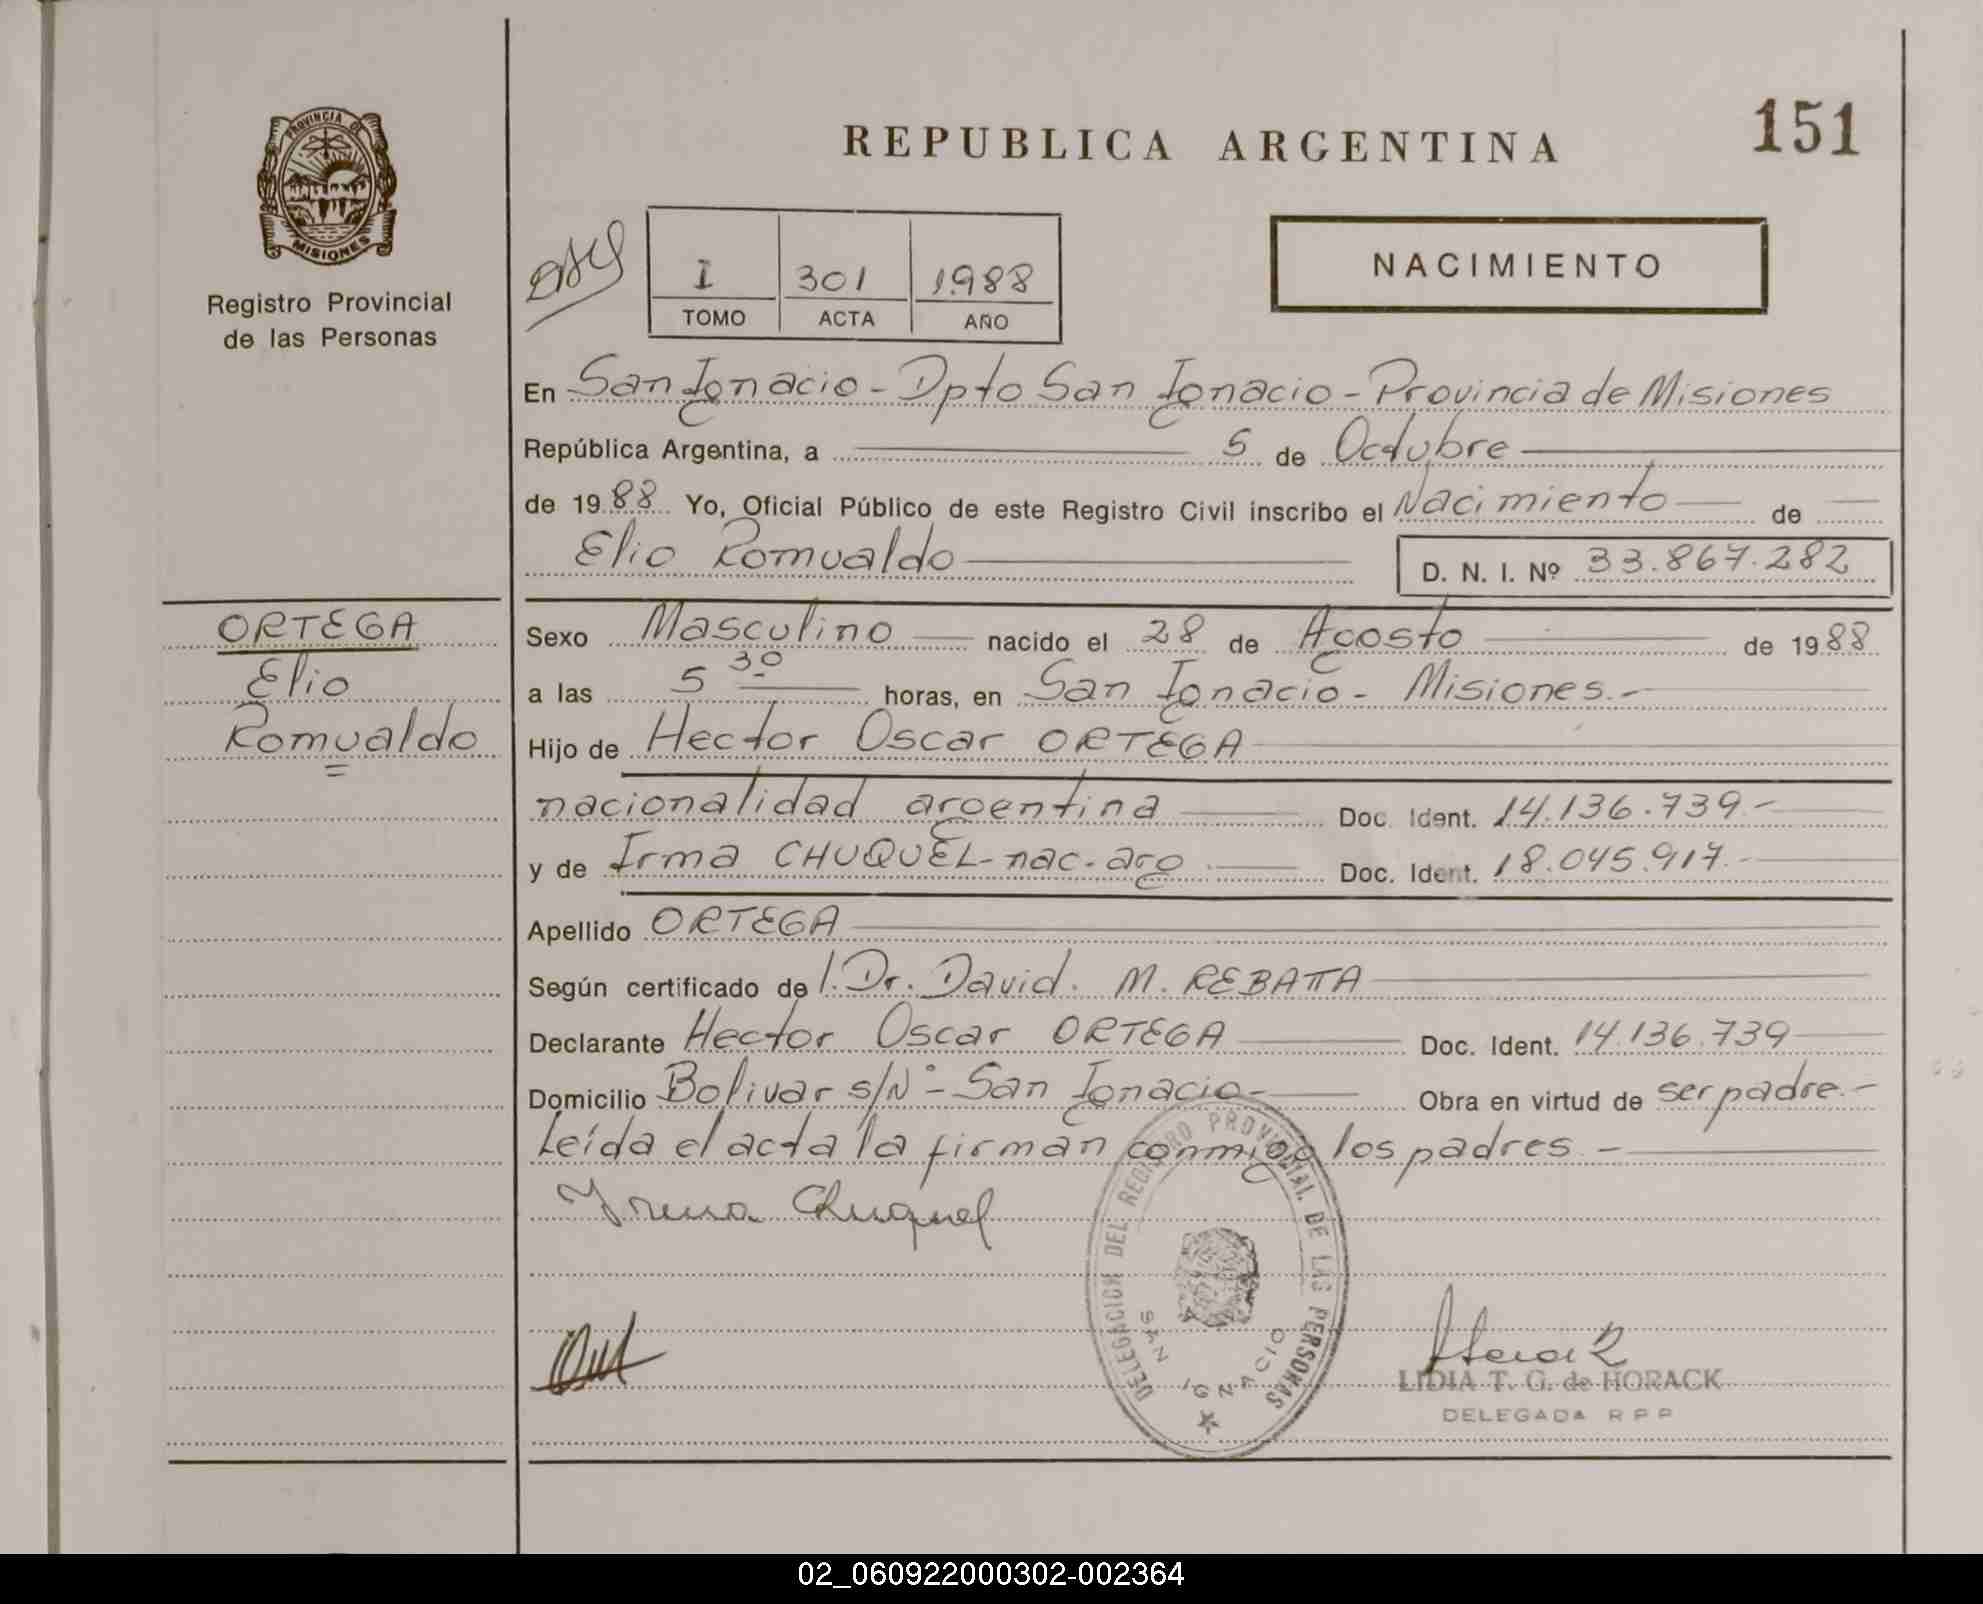 PROVINCIA DE
MISIONES
Registro Provincial
de las Personas
REPUBLICA ARGENTINA
151
I 301 1988
TOMO ACTA AÑO
NACIMIENTO
En San Ignacio - Dpto San Ignacio - Provincia de Misiones
República Argentina, a 5 de Octubre
de 1988 Yo, Oficial Público de este Registro Civil inscribo el Nacimiento de
Elio Romualdo D. N. I. Nº 33.867.282
ORTEGA
Elio
Romualdo
Sexo Masculino nacido el 28 de Agosto de 1988
a las 5 30 horas, en San Ignacio - Misiones.-
Hijo de Hector Oscar ORTEGA
nacionalidad argentina Doc. Ident. 14.136.739-
y de Irma CHUQUEL-nac. arg Doc. Ident. 18.045.917.-
Apellido ORTEGA
Según certificado del Dr. David. M. REBATTA
Declarante Hector Oscar ORTEGA Doc. Ident. 14.136.739
Domicilio Bolivar s/Nº- San Ignacio- Obra en virtud de ser padre.-
Leída el acta la firman conmigo los padres.-
Irma Chuquel
DELEGACION DEL REGISTRO PROVINCIAL DE LAS PERSONAS
SAN IGNACIO
LIDIA T. G. de HORACK
DELEGADA R P P
02_060922000302-002364